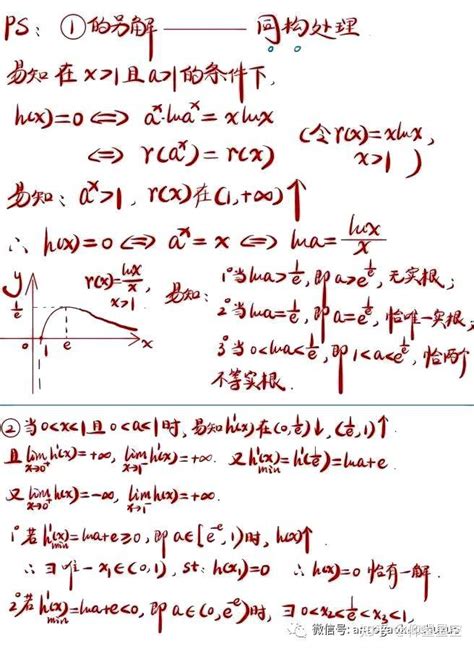 PS: ①的另解 —— 同构处理
易知在x>1且a>1的条件下,
h(x)=0 ⇔ a^x·lna^x = xlnx
(令r(x)=xlnx, x>1)
⇔ r(a^x) = r(x)
易知: a^x>1, r(x)在(1,+∞)↑
∴ h(x)=0 ⇔ a^x = x ⇔ lna = lnx/x
y
1/e
0
1
e
x
r(x)=lnx/x, x>1
易知:
1°当lna>1/e,即a>e^(1/e),无实根;
2°当lna=1/e,即a=e^(1/e),恰唯一实根;
3°当0<lna<1/e,即1<a<e^(1/e),恰两个
不等实根.
②当0<x<1且0<a<1时,易知h'(x)在(0,1/e)↓,(1/e,1)↑
且lim x→0⁺ h'(x)=+∞, lim x→1⁻ h'(x)=+∞. 又h'(x)min=h'(1/e)=lna+e
又lim x→0⁺ h(x)=-∞, lim x→1⁻ h(x)=+∞.
1°若h'(x)min=lna+e≥0,即a∈[e^-e,1)时,h(x)↑
∴∃唯一x₁∈(0,1), st: h(x₁)=0 ∴h(x)=0恰有一解.
2°若h'(x)min=lna+e<0,即a∈(0,e^-e)时,∃0<x₂<1/e<x₃<1,
微信号: